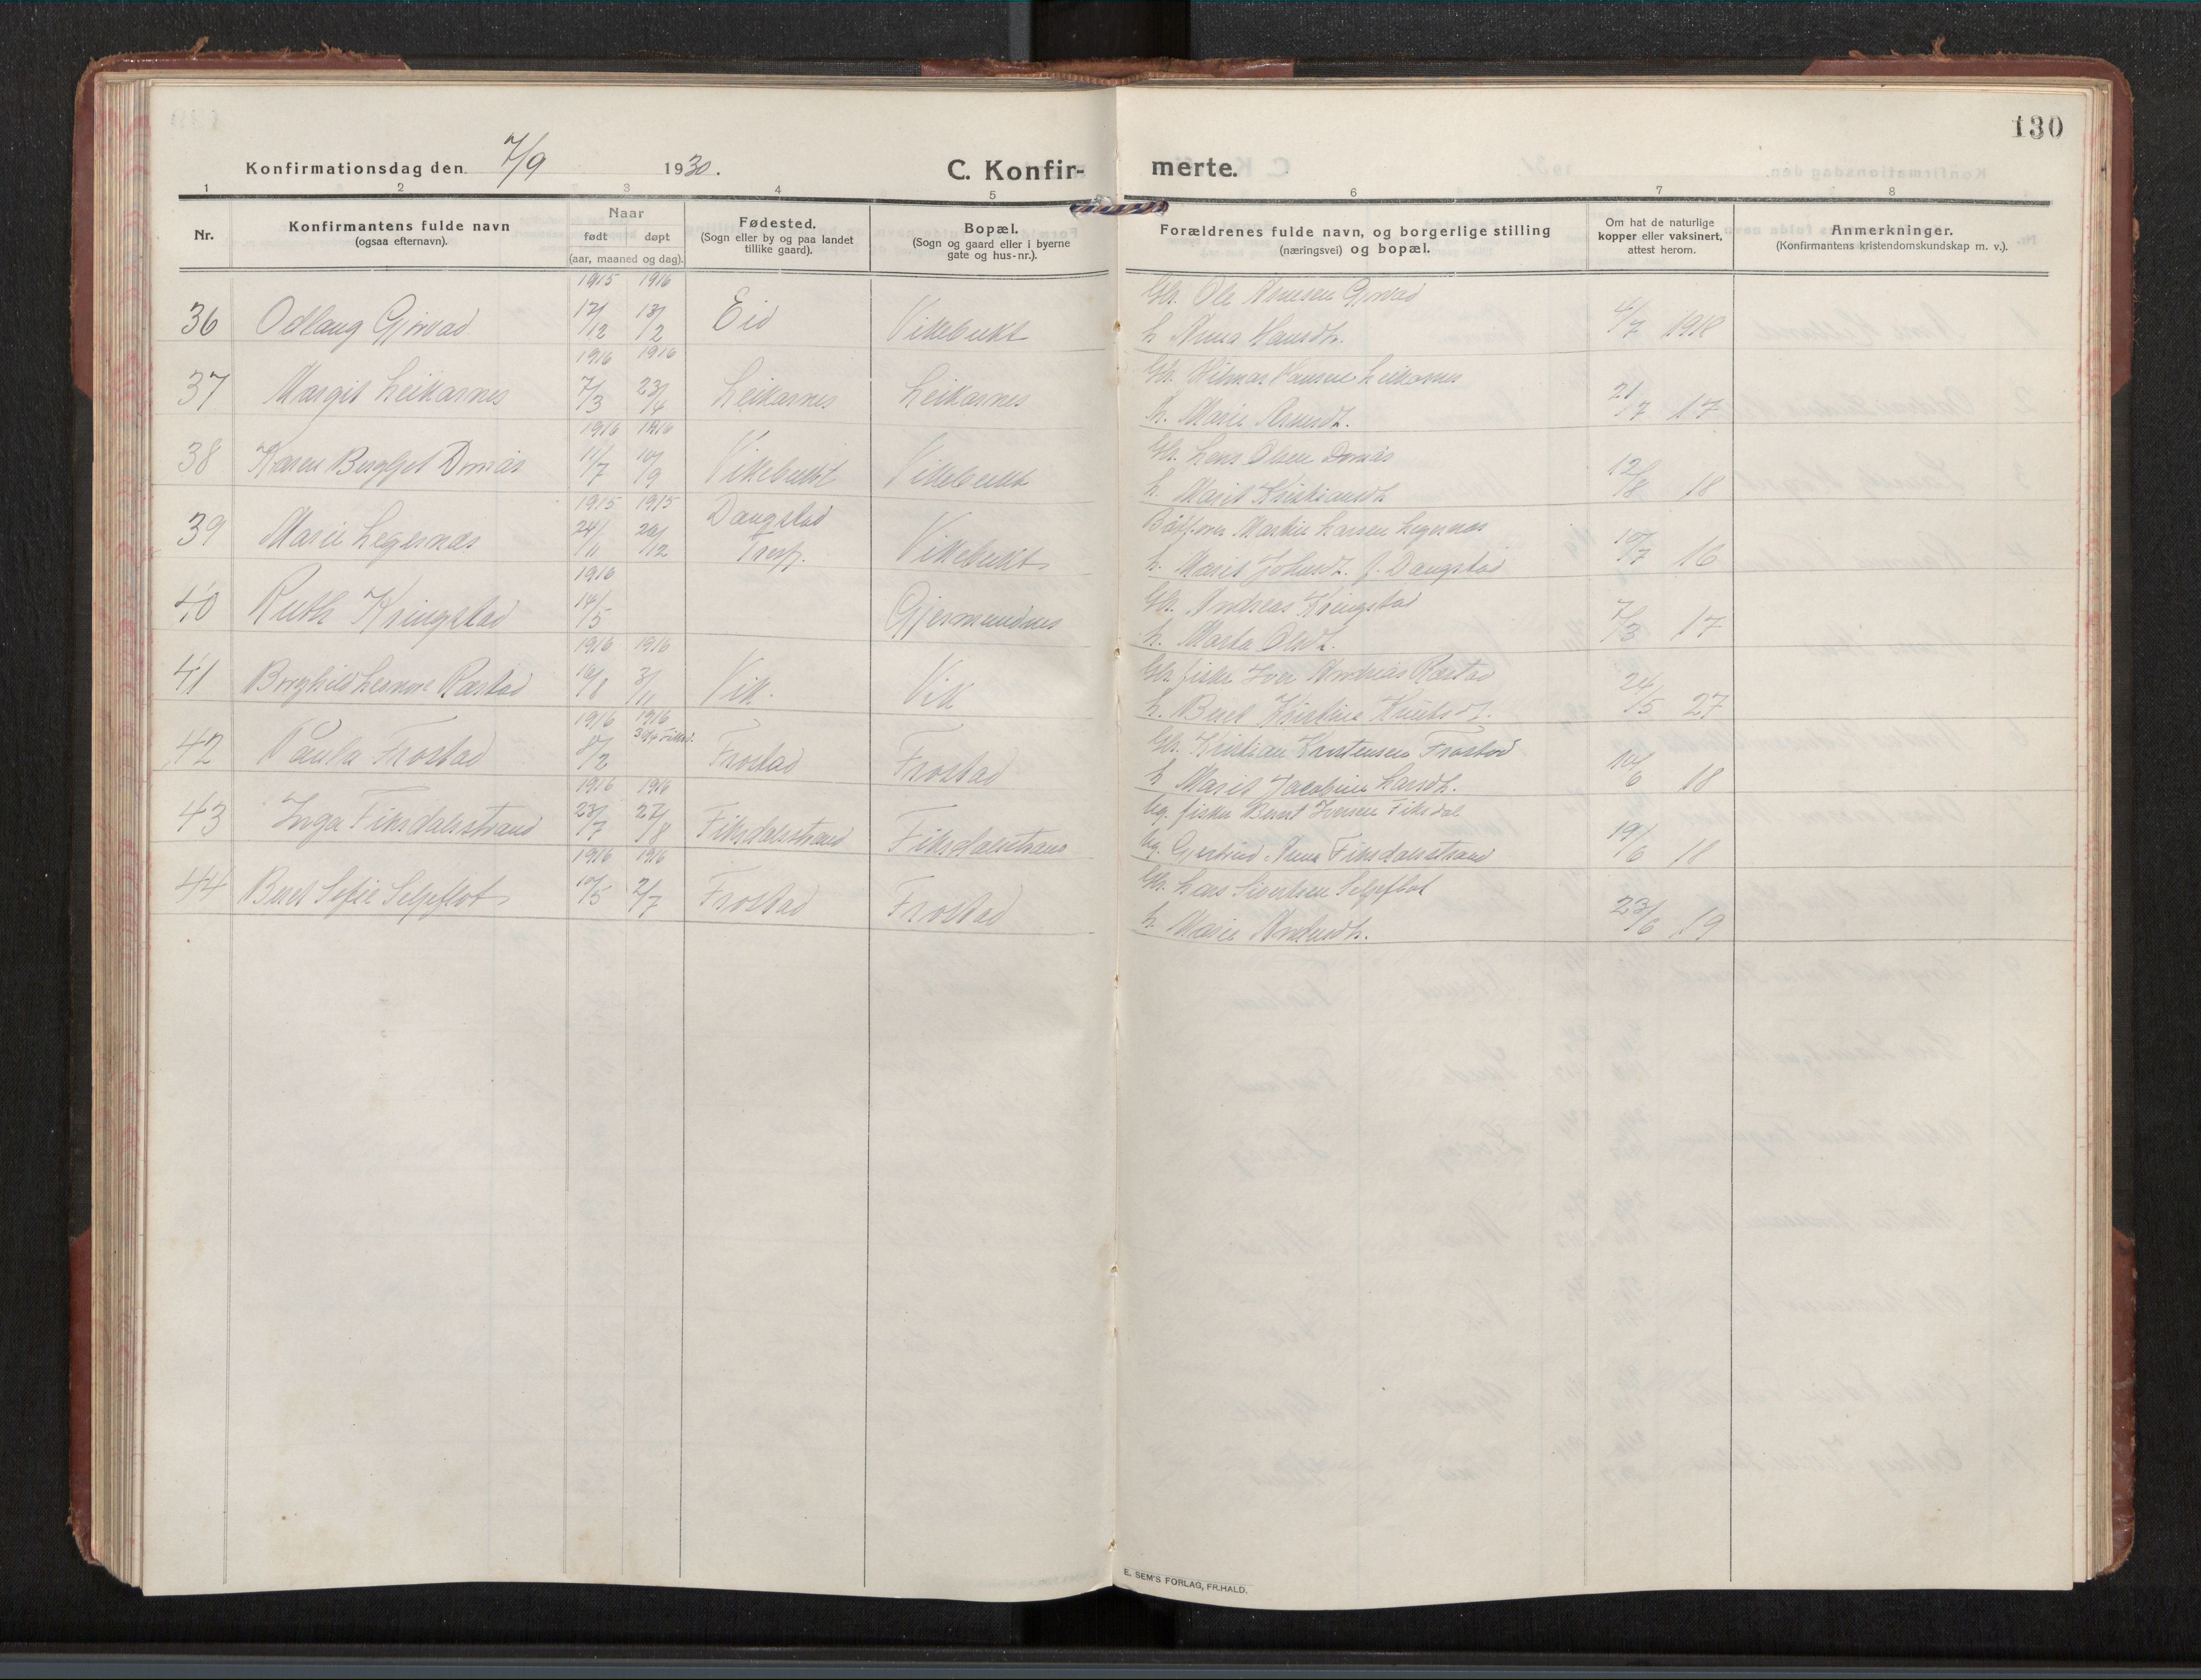 130
Konfirmationsdag den 7/9 1930.
C. Konfirmerte.
1 2 3 4 5 6 7 8
Nr.
Konfirmantens fulde navn
(ogsaa efternavn).
Naar
født døpt
(aar, maaned og dag).
Fødested.
(Sogn eller by og paa landet
tillike gaard).
Bopæl.
(Sogn og gaard eller i byerne
gate og hus-nr.).
Forældrenes fulde navn, og borgerlige stilling
(næringsvei) og bopæl.
Om hat de naturlige
kopper eller vaksinert,
attest herom.
Anmerkninger.
(Konfirmantens kristendomskundskap m. v.).
1915 1916
36 Odlaug Gjivad 12/12 13/2 Eid Vikebukt
Gbr. Ole Gjivad
h. Anna Hansdt. 4/7 1918
1916 1916
37 Margit Leikarnes 7/3 23/4 Leikarnes Leikarnes
Gbr. Hilmar Hansen Leikarnes
h. Marie 21/7 17
1916 1916
38 Karen Bergljot 11/7 10/9 Vikebukt Vikebukt
Gbr. Lars Olsen
h. Marit Kristiansdt. 12/8 18
1915 1915
39 Marie Legernæs 24/11 26/12 Daugstad
Tresf. Vikebukt
Martin Larsen Legernæs
h. Marit Johnsdt. f. Daugstad 10/7 16
1916
40 Ruth Kringstad 14/5 Gjermundnes
Gbr. Andreas Kringstad
h. Marta Olsdt. 7/3 17
1916 1916
41 Borghild Ræstad 10/8 3/11 Vik. Vik
Gbr. fisker Iver Andreas Ræstad
h. Beret Kristine Knutsdt. 24/5 27
1916 1916
42 Paula Frostad 8/2 30/4 Frostad Frostad
Gbr. Kristian Frostad
h. Marit Jacobine Larsdt. 10/6 18
1916 1916
43 Inga Fiksdalsstrand 23/7 27/8 Fiksdalsstrand Fiksdalsstrand
ug. fisker Bernt Iversen Fiksdal
ug. Gjertrud Anna Fiksdalsstrand 19/6 18
1916 1916
44 Beret Sofie Seljeflot 10/5 2/7 Frostad Frostad
Gbr. Lars Sivertsen Seljeflot
h. Marie 23/6 19
E. SEM'S FORLAG, FR.HALD.